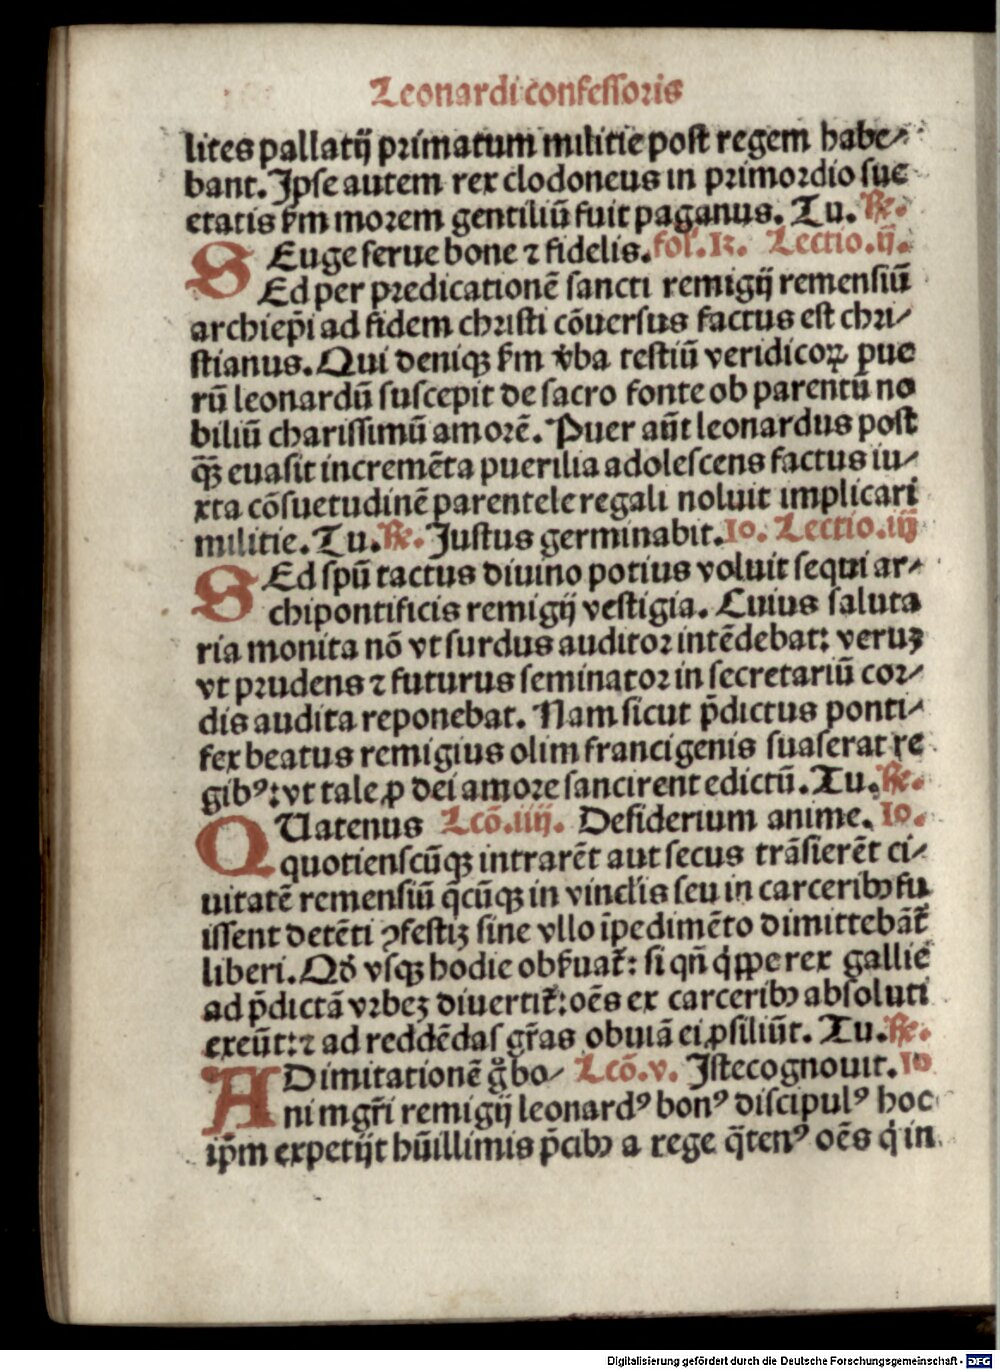 Leonardi confessoris
lites pallatij primatum militie post regem habe⸗
bant. Ipse autem rex clodoneus in primordio sue
etatis ẜm morem gentiliū fuit paganus. Tu. ℟.
Euge serue bone ⁊ fidelis. fol. Lectio. ij.
SEd per predicationē sancti remigij remensiū
archiep̄i ad fidem christi cōuersus factus est chri⸗
stianus. Qui deniqꝫ ẜm v̄ba testiū veridicoꝝ pue
rū leonardū suscepit de sacro fonte ob parentū no
biliū charissimū amorē. Puer aūt leonardus post
qꝫ̄ euasit incremēta puerilia adolescens factus iu⸗
xta cōsuetudinē parentele regali noluit implicari
militie. Tu. ℟. Justus germinabit. 10. Lectio. iij
SEd spū tactus diuino potius voluit sequi ar⸗
chipontificis remigij vestigia. Cuius saluta
ria monita nō vt surdus auditor intēdebat: veruꝫ
vt prudens ⁊ futurus seminator in secretariū cor⸗
dis audita reponebat. Nam sicut p̄dictus ponti⸗
fex beatus remigius olim francigenis suaserat re
gibꝰ: vt tale ꝓ dei amore sancirent edictū. Tu. ℟.
QUatenus Lcō. iiij. Desiderium anime. 10.
quotienscūqꝫ intrarēt aut secus trāsierēt ci⸗
uitatē remensiū q̄cūqꝫ in vinclis seu in carceribꝫ fu
issent detēti ꝯfestiꝫ sine vllo īpedimēto dimittebāt̄
liberi. Qd̄ vsqꝫ hodie obẜuat̄: si qn̄ q̇ꝓpe rex gallie
ad p̄dictā vrbeꝫ diuertit̄: oēs ex carceribꝫ absoluti
exeūt: ⁊ ad reddēdas gr̄as obuiā ei ꝓsiliūt. Tu. ℟.
AD imitationē g̊ bo⸗ Lcō. v. Iste cognouit. 10
ni mgr̄i remigij leonardꝰ bonꝰ discipulꝰ hoc
ip̄m expetijt hūillimis p̄cibꝫ a rege q̄tenꝰ oēs q̇ in
Digitalisierung gefördert durch die Deutsche Forschungsgemeinschaft - DFG